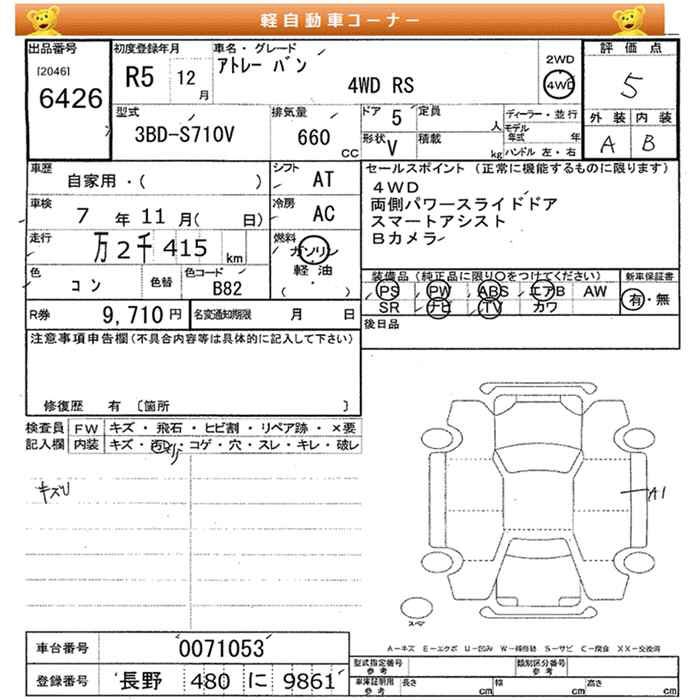 軽自動車コーナー
出品番号
[2046]
6426
初度登録年月
R5 12月
車名・グレード
アトレー バン
4WD RS
2WD
4WD
評価点
5
外装 内装
A B
型式
3BD-S710V
排気量
660 cc
ドア 5
定員 人
形状 V
積載 kg
ディーラー・並行
モデル年式 年
ハンドル 左・右
車歴
自家用・( )
シフト AT
車検 7年11月( 日)
冷房 AC
走行 万2千415km
燃料
ガソリン
軽油
( ・ )
色 コン
色替
色コード B82
R券 9,710円
名変通知期限 月 日
セールスポイント (正常に機能するものに限ります)
4WD
両側パワースライドドア
スマートアシスト
Bカメラ
装備品(純正品に限り○をつけてください)
PS PW ABS エアB AW
SR ナビ TV カワ
新車保証書
有・無
後日品
注意事項申告欄(不具合内容等は具体的に記入して下さい)
修復歴 有 〔箇所 〕
検査員 FW キズ・飛石・ヒビ割・リペア跡・×要
記入欄 内装 キズ・汚レ・コゲ・穴・スレ・キレ・破レ
キズU
A1
スペア
A-キズ E-エクボ U-凹み W-補修跡 S-サビ C-腐食 XX-交換済
車台番号 0071053
登録番号 長野 480 に 9861
型式指定番号 参考
類別区分番号 参考
車庫証明用 参考 長さ cm 幅 cm 高さ cm